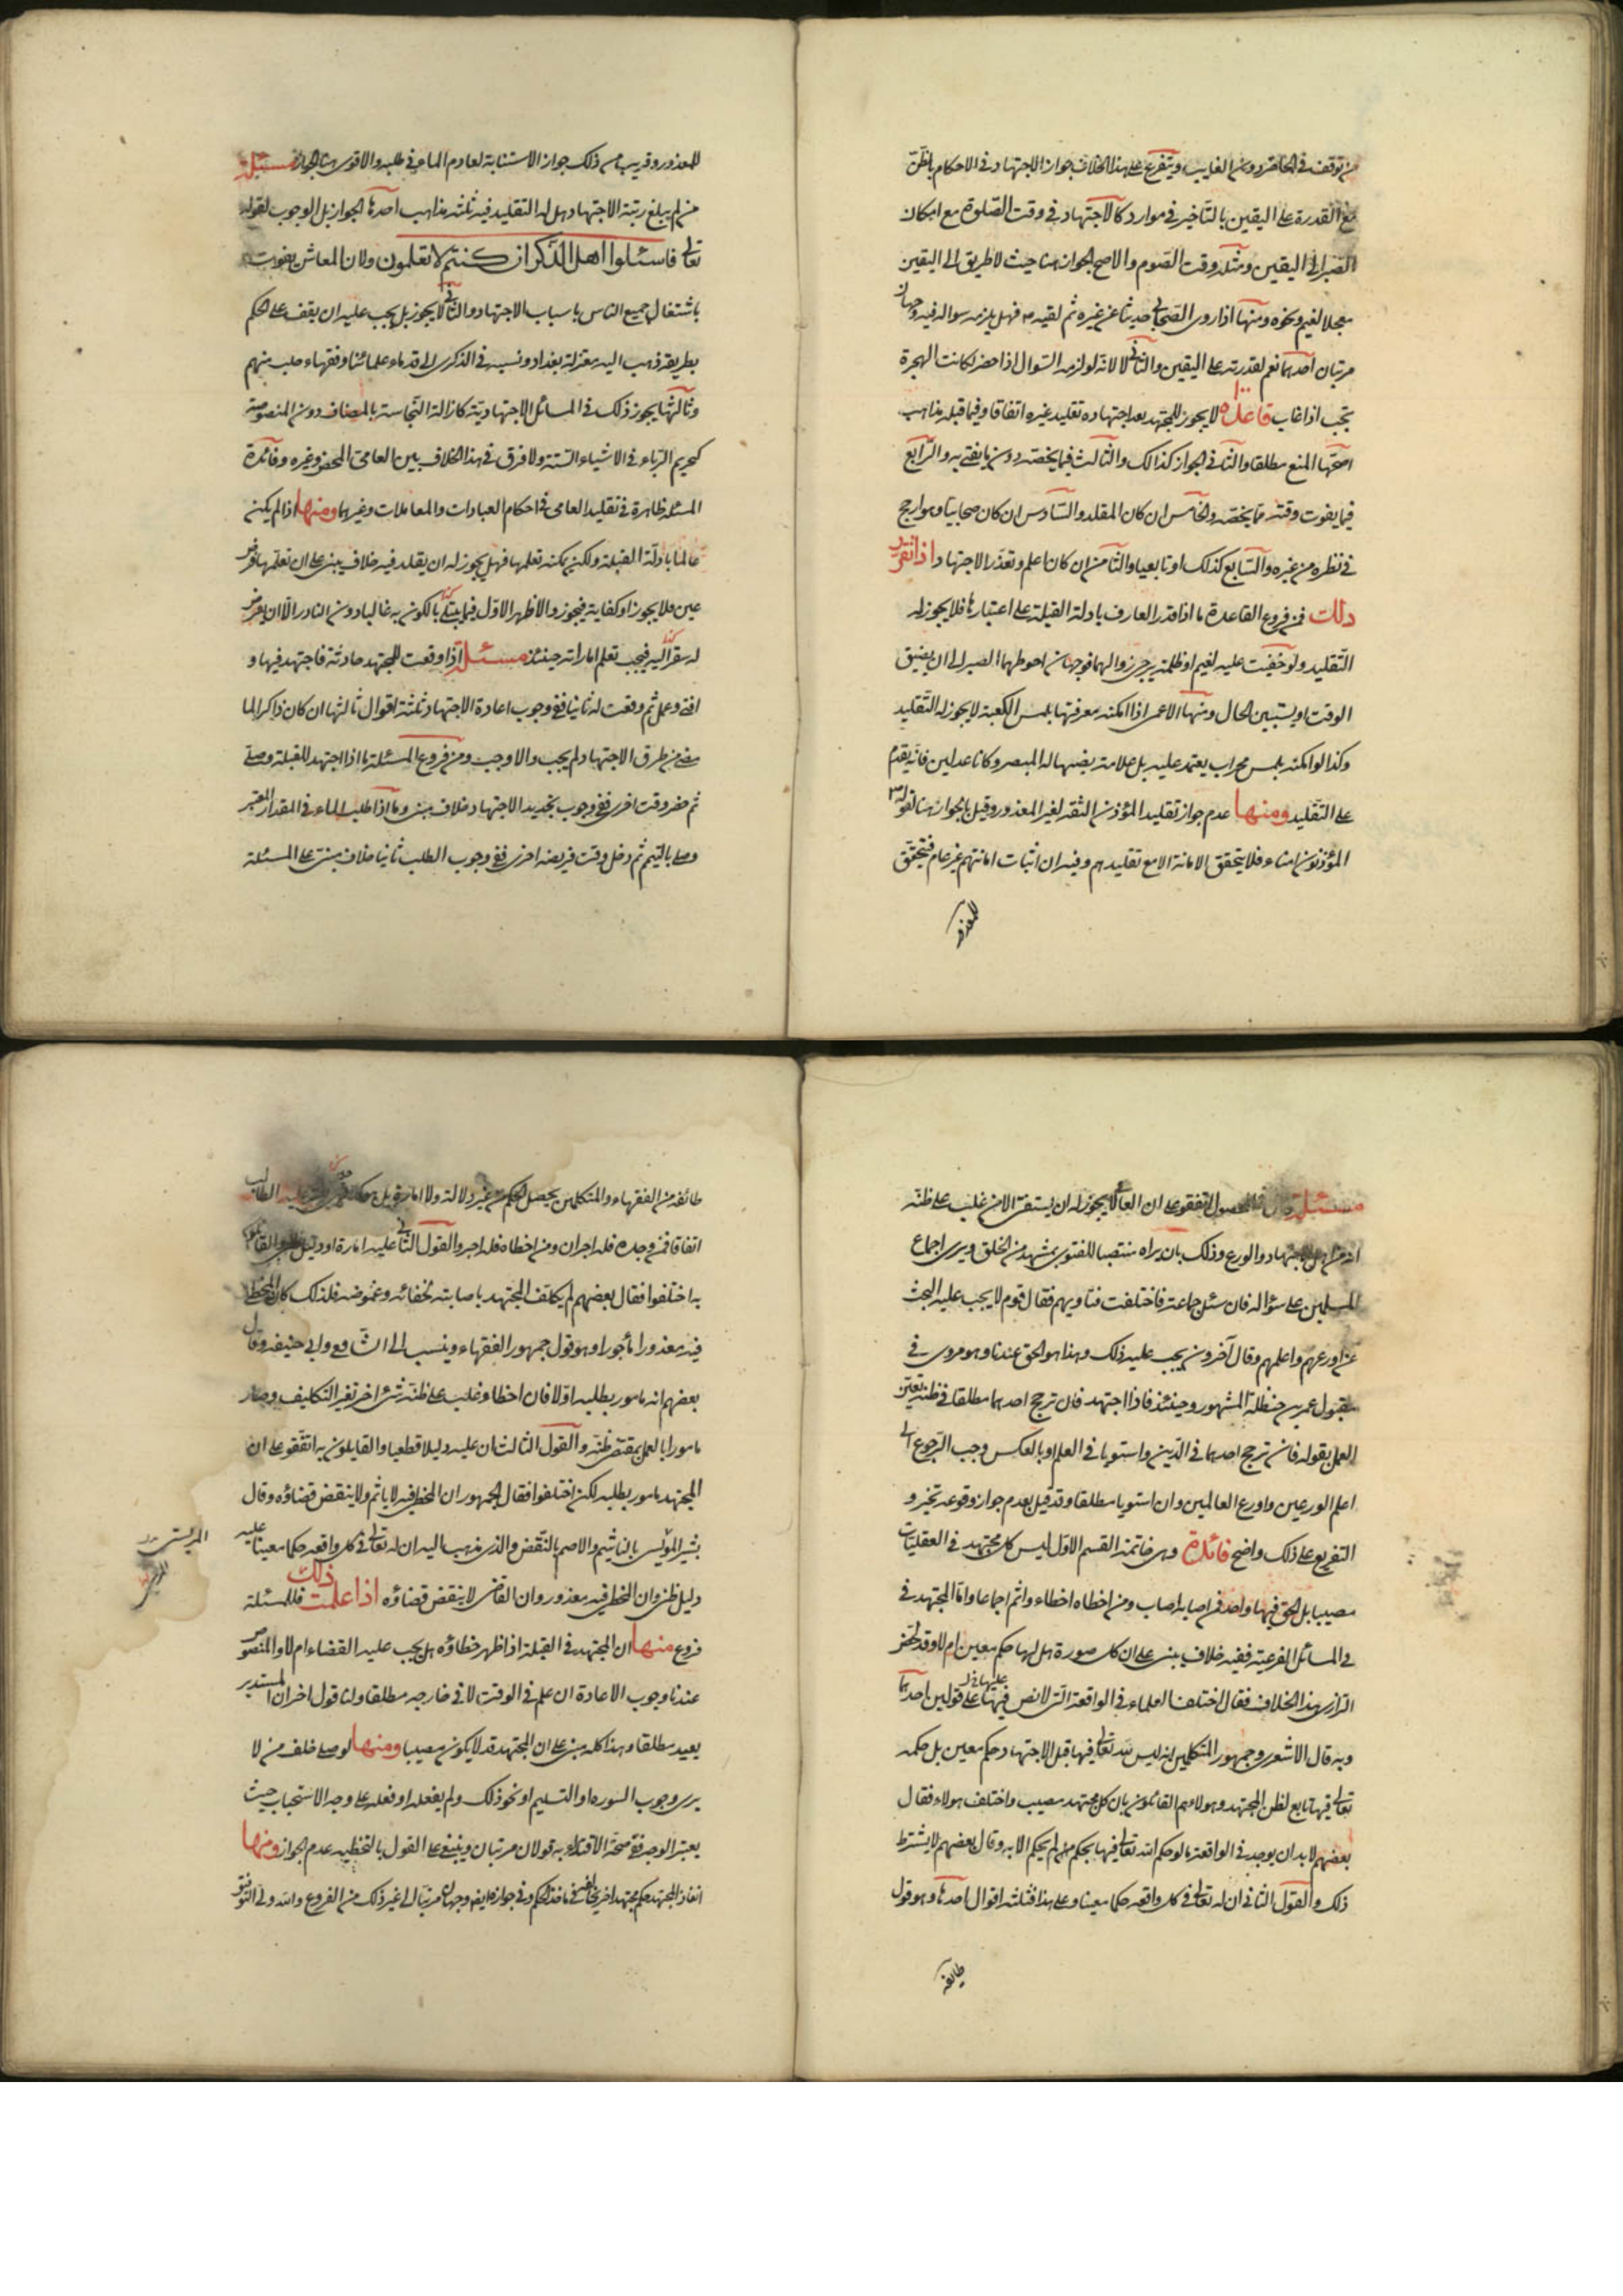 من توقف في الحاضر دون الغايب ويتفرع على هذا الخلاف جواز الاجتهاد في الاحكام بالظن
مع القدرة على اليقين بالتأخير في موارد كالاجتهاد في وقت الصلوة مع امكان
الصبر الى اليقين ومثله وقت الصوم والاصح الجواز هنا حيث لا طريق الى اليقين
معجلا لغيم ونحوه ومنها اذا روى الصحابي حديثا عن غيره ثم لقيه فهل يلزمه سواله فيه وجهان
مرتبان احدهما نعم لقدرته على اليقين والثاني لا لانه لو لزمه السوال اذا حضر لكانت الهجرة
تجب اذا غاب قاعدة لا يجوز للمجتهد بعد اجتهاده تقليد غيره اتفاقا وفيما قبله مذاهب
اصحها المنع مطلقا والثاني الجواز كذالك والثالث فيما يخصه دون ما يفتي به والرابع
فيما يفوت وقته مما يخصه والخامس ان كان المقلد والسادس ان كان صحابيا وهو ارجح
في نظره من غيره والسابع كذلك او تابعيا والثامن ان كان اعلم وتعذر الاجتهاد اذا تقرر
ذلك فمن فروع القاعدة ما اذا قدر العارف بادلة القبلة على اعتبارها فلا يجوز له
التقليد ولو خفيت عليه لغيم او ظلمة يرجى زوالهما فوجهان احوطهما الصبر الى ان يضيق
الوقت او يستبين الحال ومنها الاعمى اذا امكنه معرفتها بلمس الكعبة لا يجوز له التقليد
وكذا لو امكنه بلمس محراب يعتمد عليه بل علامة يضبها له المبصر وكانا عدلين فانه يقدم
على التقليد ومنها عدم جواز تقليد المؤذن الثقة لغير المعذور وقيل بالجواز هنا لقوله
المؤذنون امناء فلا يتحقق الامانة الا مع تقليدهم وفيه ان اثبات امانتهم غير عام فيتحقق
للمعذور
للمعذور وقريب من ذلك جواز الاستنابة لعادم الماء في طلبه والاقوى هنا الجواز مسئلة
من لم يبلغ رتبة الاجتهاد هل له التقليد فيه ثلثة مذاهب احدها الجواز بل الوجوب لقوله
تعالى فاسئلوا اهل الذكر ان كنتم لا تعلمون ولان المعاش يفوت
باشتغال جميع الناس باسباب الاجتهاد والثاني لا يجوز بل يجب عليه ان يقف على الحكم
بطريقه ذهب اليه معتزلة بغداد ونسبه في الذكرى الى قدماء علمائنا وفقهاء حلب منهم
وثالثها يجوز ذلك في المسائل الاجتهادية كازالة النجاسة بالمضاف دون المنصوصة
كتحريم الرباء في الاشياء الستة ولا فرق في هذا الخلاف بين العامي المحض وغيره وفائدة
المسئلة ظاهرة في تقليد العامي في احكام العبادات والمعاملات وغيرهما ومنها اذا لم يكن
عالما بادلة القبلة ولكن يمكنه تعلمها فهل يجوز له ان يقلد فيه خلاف يبنى على ان تعلمها فرض
عين فلا يجوز او كفاية فيجوز والاظهر الاول فيما يبتلى بالكون به غالبا دون النادر الا ان يعرض
له سفر اليه فيجب تعلم اماراته حينئذ مسئلة اذا وقعت للمجتهد حادثة فاجتهد فيها و
افتى وعمل ثم وقعت له ثانيا ففي وجوب اعادة الاجتهاد ثلثة اقوال ثالثها ان كان ذاكرا لما
مضى من طرق الاجتهاد لم يجب والا وجب ومن فروع المسئلة ما اذا اجتهد للقبلة وصلى
ثم حضر وقت اخرى ففي وجوب تجديد الاجتهاد خلاف مبني وما اذا طلب الماء في المقدار المعتبر
وصلى بالتيمم ثم دخل وقت فريضة اخرى ففي وجوب الطلب ثانيا خلاف مبني على المسئلة
مسئلة قال في المحصول اتفقوا على ان العامي لا يجوز له ان يستفتي الا من غلب على ظنه
انه من اهل الاجتهاد والورع وذلك بان يراه منتصبا للفتوى بمشهد من الخلق ويرى اجماع
المسلمين على سؤاله فان سئل جماعة فاختلفت فتاويهم فقال قوم لا يجب عليه البحث
عن اورعهم واعلمهم وقال آخرون يجب عليه ذلك وهذا هو الحق عندنا وهو مروى في
مقبول عمر بن حنظلة المشهور وحينئذ فاذا اجتهد فان ترجح احدهما مطلقا في ظنه تعين
العمل بقوله فان ترجح احدهما في الدين واستويا في العلم او بالعكس وجب الرجوع الى
اعلم الورعين واورع العالمين وان استويا مطلقا وقد قيل بعدم جواز وقوعه تخير و
التفريع على ذلك واضح فائدة وهي خاتمة القسم الاول ليس كل مجتهد في العقليات
مصيبا بل الحق فيها واحد فمن اصابه اصاب ومن اخطاه اخطاء واثم اجماعا واما المجتهد في
في المسائل الفرعية ففيه خلاف يبنى على ان كل صورة هل لها حكم معين ام لا وقد لخص
الرازي هذا الخلاف فقال اختلف العلماء في الواقعة التي لا نص فيها على قولين احدهما
وبه قال الاشعري وجمهور المتكلمين انه ليس لله تعالى فيها قبل الاجتهاد حكم معين بل حكمه
تعالى فيها تابع لظن المجتهد وهولاء هم القائلون بان كل مجتهد مصيب واختلف هولاء فقال
بعضهم لا بد ان يوجد في الواقعة ما لو حكم الله تعالى فيها بحكم لم يحكم الا به وقال بعضهم لا يشترط
ذلك والقول الثاني ان له تعالى في كل واقعة حكما معينا وعلى هذا فثلثة اقوال احدها وهو قول
طايفة
طائفة من الفقهاء والمتكلمين يحصل الحكم من غير دلالة ولا امارة بل هو كدفين يعثر عليه الطالب
اتفاقا فمن وجده فله اجران ومن اخطاه فله اجر والقول الثاني عليه امارة اى دليل ظني والقائلون
به اختلفوا فقال بعضهم لم يكلف المجتهد باصابته لخفائه وغموضه فلذلك كان المخطى
فيه معذورا مأجورا وهو قول جمهور الفقهاء وينسب الى الشافعي وابي حنيفة وقال
بعضهم انه مامور بطلبه اولا فان اخطا وغلب على ظنه شئ اخر تغير التكليف وصار
مامورا بالعمل بمقتضى ظنه والقول الثالث ان عليه دليلا قطعيا والقايلون به اتفقوا على ان
المجتهد مامور بطلبه لكن اختلفوا فقال الجمهور ان المخطى فيه لا ياثم ولا ينقض قضاؤه وقال
بشر المريسي بالتاثيم والاصم بالنقض والذي نذهب اليه ان له تعالى في كل واقعة حكما معينا عليه
دليل ظني وان المخطى فيه معذور وان القاضي لا ينقض قضاؤه اذا علمت ذلك فللمسئلة
فروع منها ان المجتهد في القبلة اذا ظهر خطاؤه هل يجب عليه القضاء ام لا والمنصوص
عندنا وجوب الاعادة ان علم في الوقت لا في خارجه مطلقا ولنا قول اخر ان المستدبر
يعيد مطلقا وهذا كله مبني على ان المجتهد قد لا يكون مصيبا ومنها لو صلى خلف من لا
يرى وجوب السورة او التسليم او نحو ذلك ولم يفعله او فعله على وجه الاستحباب حيث
يعتبر الوجه ففي صحة الاقتداء به قولان مرتبان وينبغي على القول بالتخطئة عدم الجواز ومنها
انفاذ المجتهد حكم مجتهد اخر يخالفه في ماخذ الحكم وفي جوازه ايضا وجهان مرتبان الى غير ذلك من الفروع والله ولي التوفيق
المريسي